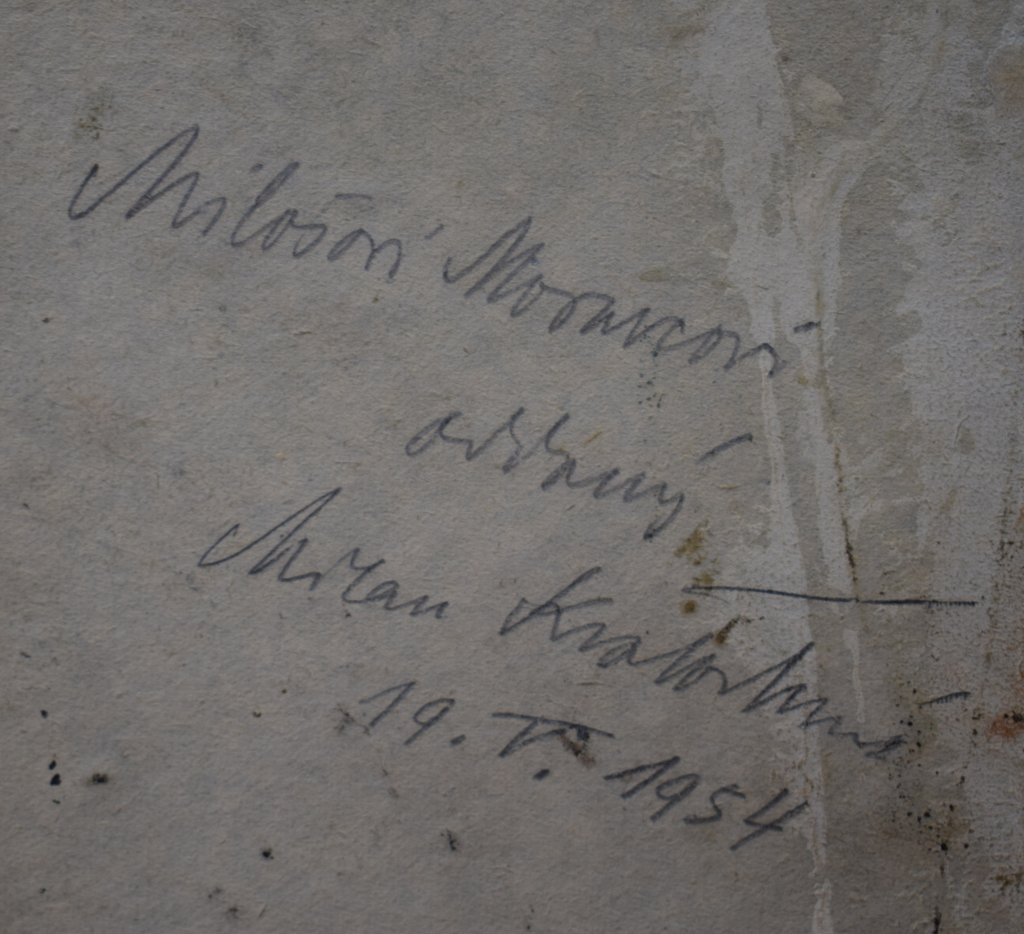 Milošovi Moravcovi
oddaný
Milan Kratochvíl
19. V. 1954